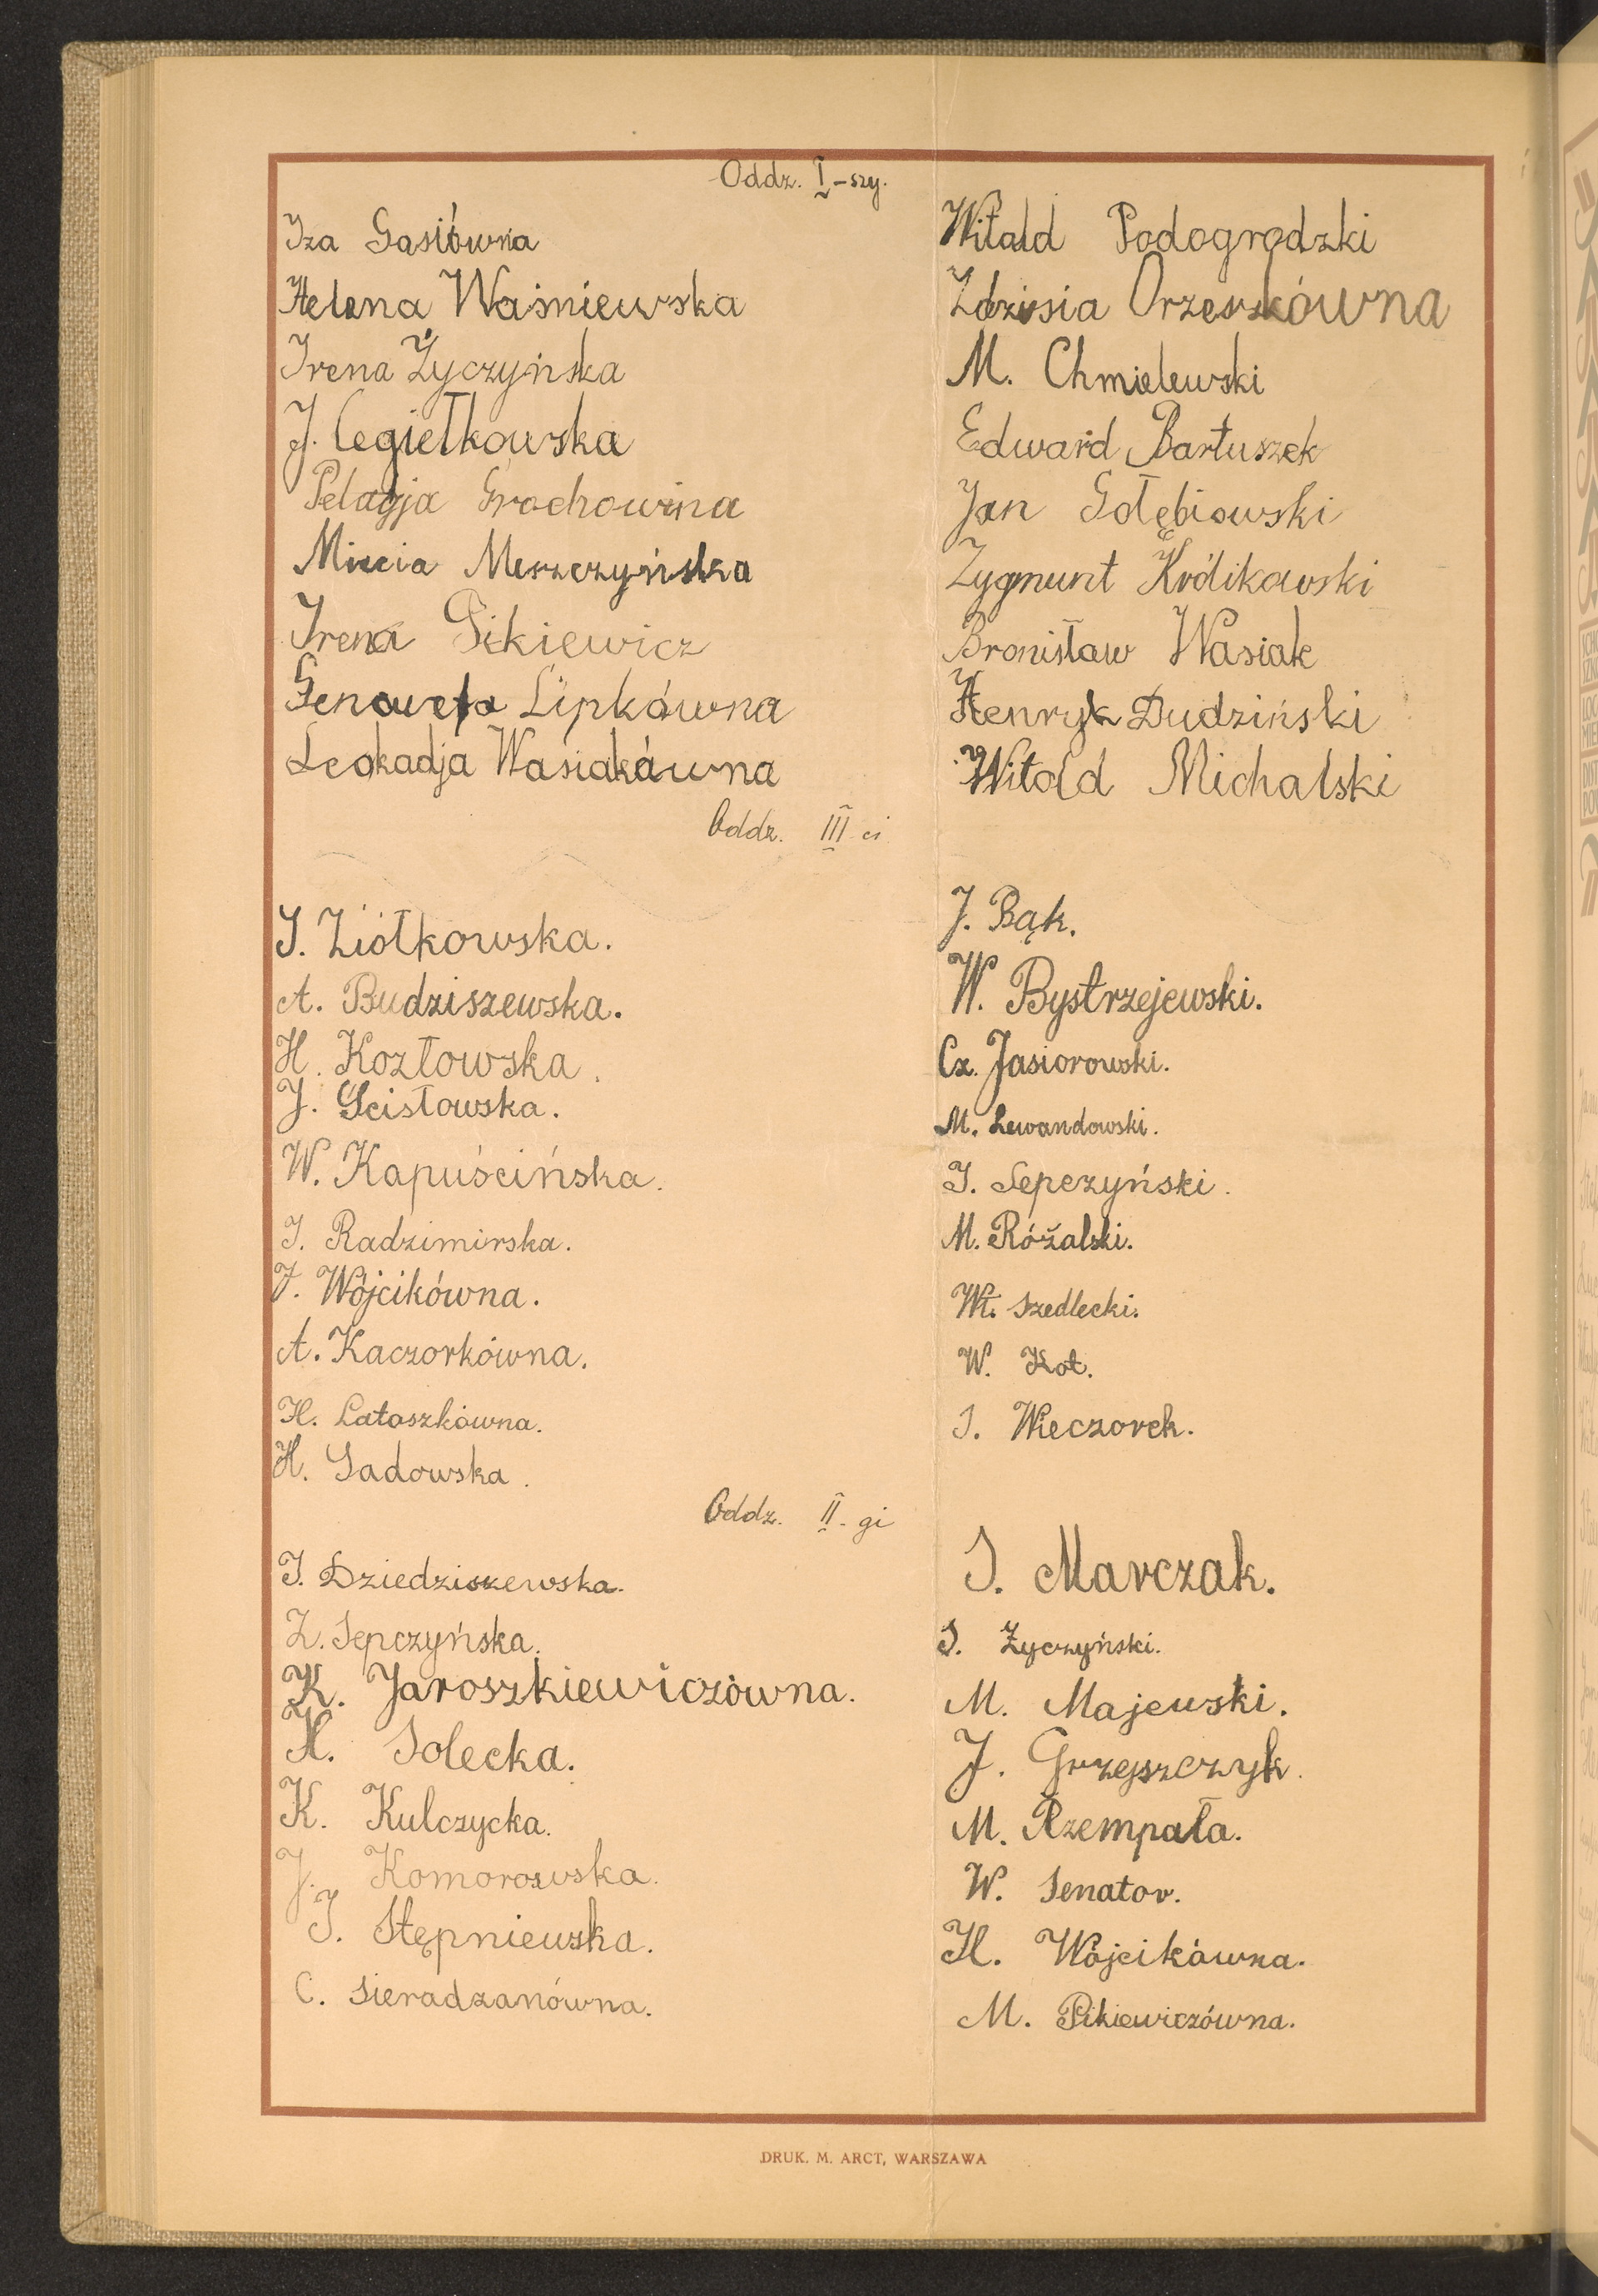 Oddz. I-szy.
Iza Gasiówna
Helena Waśniewska
Irena Życzyńska
J. Cegiełkowska
Pelagja Grochowina
Miecia Meszczyńska
Irena Pikiewicz
Genowefa Lipkówna
Leokadja Wasiakówna
Witold Podogrodzki
Zdzisia Orzeszkówna
M. Chmielewski
Edward Bartuszek
Jan Gołębiowski
Zygmunt Królikowski
Bronisław Wasiak
Henryk Dudziński
Witold Michalski
Oddz. III-ci
I. Ziółkowska.
A. Budziszewska.
H. Kozłowska.
J. Ścisłowska.
W. Kapuścińska.
I. Radzimirska.
J. Wójcikówna.
A. Kaczorkówna.
H. Lataszkówna.
H. Sadowska.
J. Bąk.
W. Bystrzejewski.
Cz. Jasiorowski.
M. Lewandowski.
I. Sepczyński.
M. Różalski.
Wł. Szedlecki.
W. Kot.
S. Wieczorek.
Oddz. II-gi
I. Dziedziszewska.
Z. Sepczyńska.
K. Jaroszkiewiczówna.
H. Solecka.
K. Kulczycka.
J. Komorowska.
I. Stępniewska.
C. Sieradzanówna.
S. Marczak.
S. Życzyński.
M. Majewski.
J. Grzejszczyk.
M. Rzempała.
W. Senator.
H. Wójcikówna.
M. Pikiewiczówna.
DRUK. M. ARCT, WARSZAWA